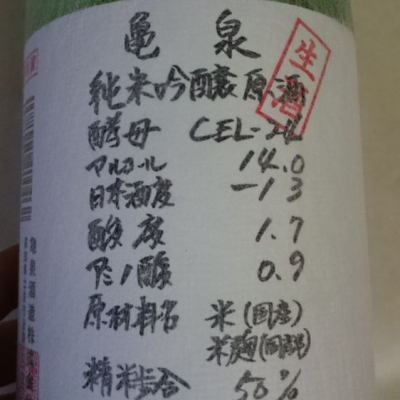 亀泉
生酒
純米吟醸原酒
酵母 CEL-24
アルコール 14.0
日本酒度 -13
酸度 1.7
アミノ酸 0.9
原材料名 米(国産)
米麹(国産米)
精米歩合 50%
亀泉酒造株式会社